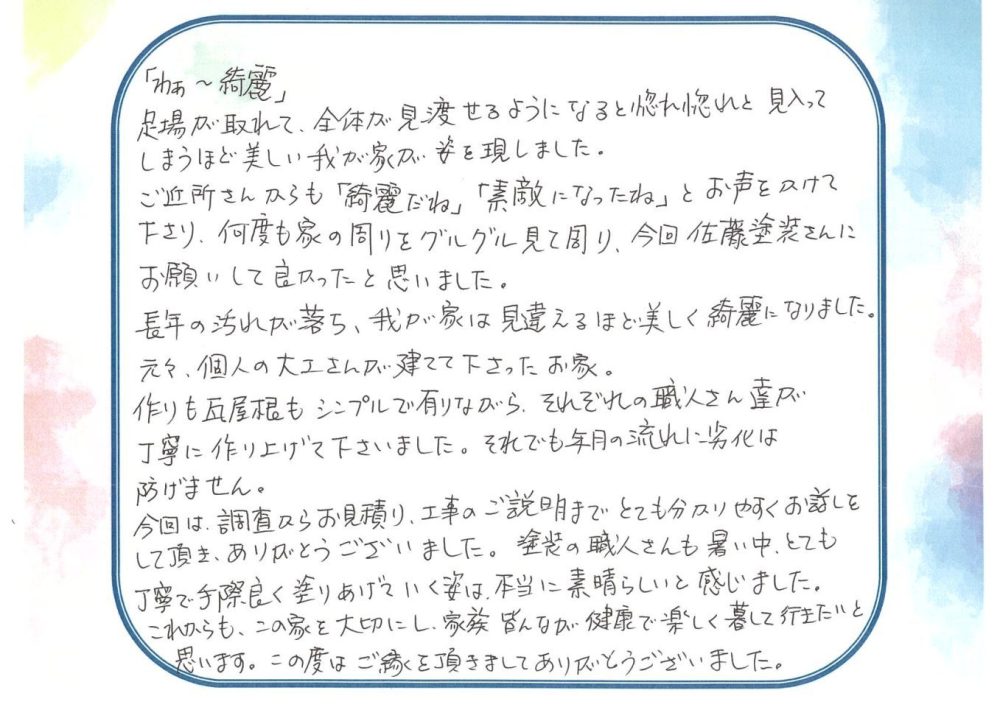 「わぁ～綺麗」
足場が取れて、全体が見渡せるようになると惚れ惚れと見入って
しまうほど美しい我が家が姿を現しました。
ご近所さんからも「綺麗だね」「素敵になったね」とお声をかけて
下さり、何度も家の周りをグルグル見て周り、今回佐藤塗装さんに
お願いして良かったと思いました。
長年の汚れが落ち、我が家は見違えるほど美しく綺麗になりました。
元々、個人の大工さんが建てて下さったお家。
作りも瓦屋根もシンプルで有りながら、それぞれの職人さん達が
丁寧に作り上げて下さいました。それでも年月の流れに劣化は
防げません。
今回は、調査からお見積り、工事のご説明までとても分かりやすくお話しを
して頂き、ありがとうございました。塗装の職人さんも暑い中、とても
丁寧で手際良く塗りあげていく姿は、本当に素晴らしいと感じました。
これからも、この家を大切にし、家族皆んなが健康で楽しく暮して行きたいと
思います。この度はご縁を頂きましてありがとうございました。